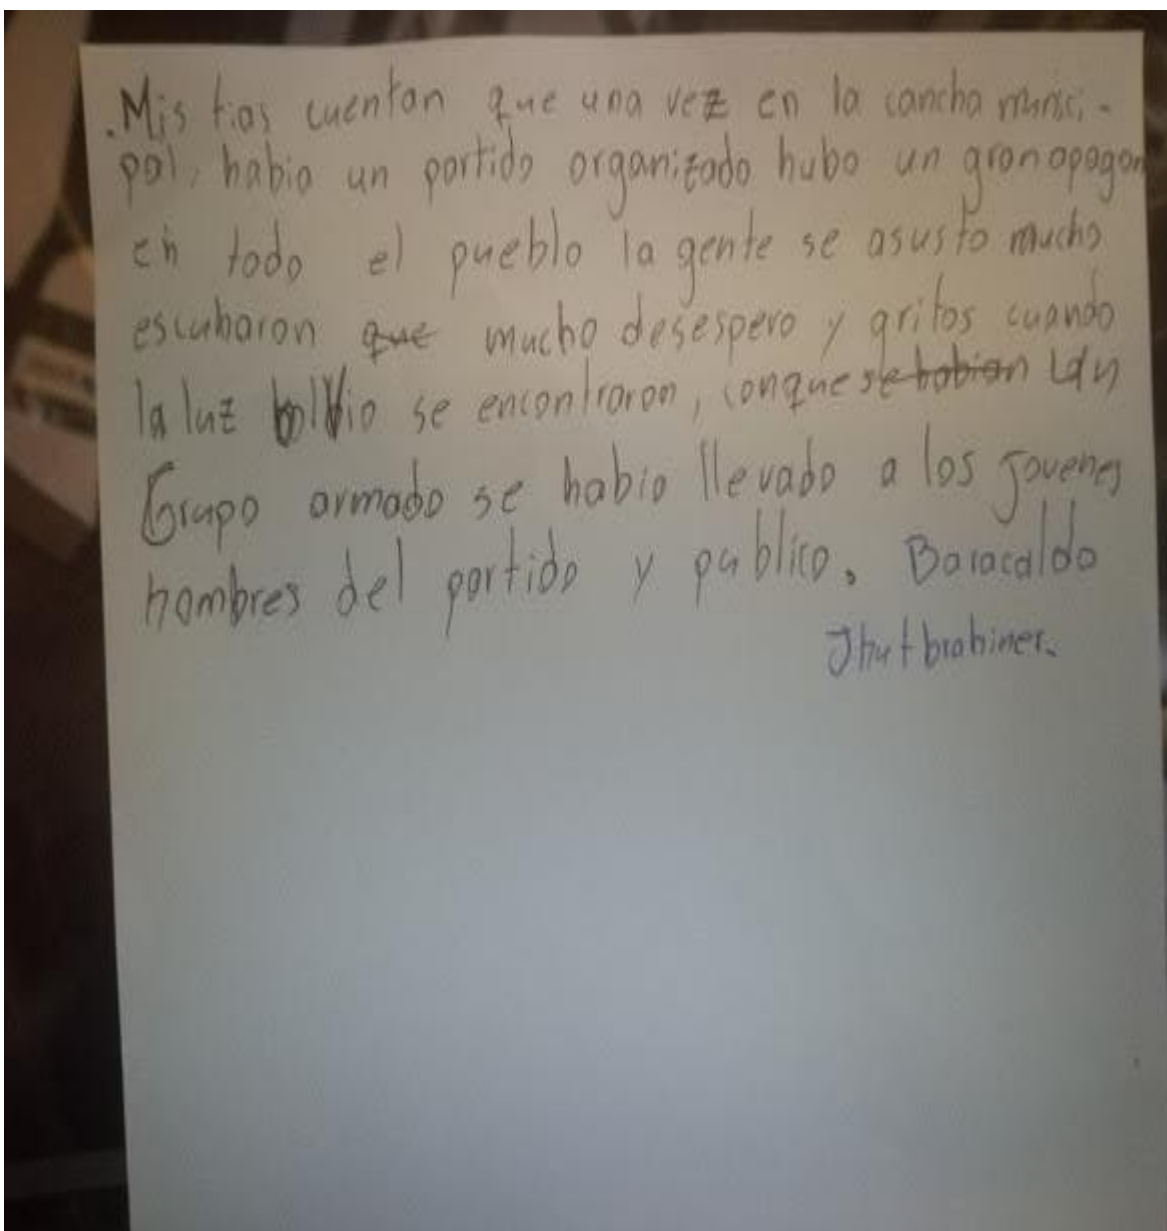 .Mis tias cuentan que una vez en la cancha munici-
pal, habia un partido organizado hubo un gran apagon
en todo el pueblo la gente se asusto mucho
escubaron que mucho desespero y gritos cuando
la luz bolvio se encontraron, conque se habian un
Grupo armado se habia llevado a los jovenes
hombres del partido y publico. Baracaldo